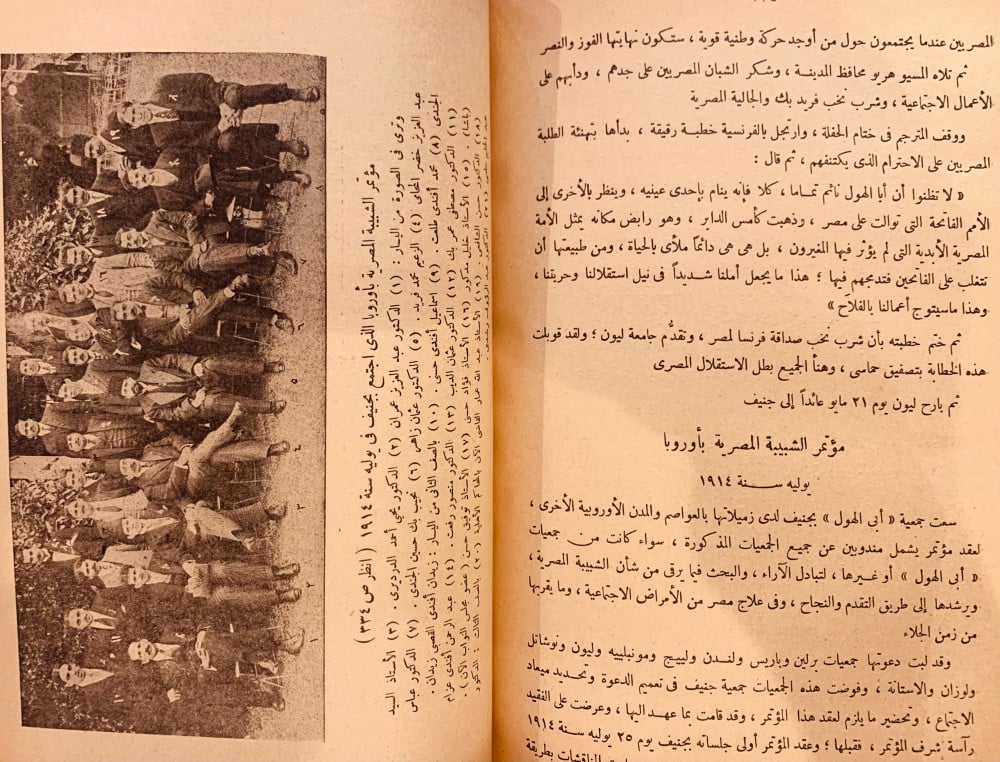 المصريين عندما يجتمعون حول من أوجد حركة وطنية قوية ، ستكون نهايتها الفوز والنصر
ثم تلاه المسيو هريو محافظ المدينة ، وشكر الشبان المصريين على جدهم ، ودأبهم على
الأعمال الاجتماعية ، وشرب نخب فريد بك والجالية المصرية
ووقف المترجم فى ختام الحفلة ، وارتجل بالفرنسية خطبة رقيقة ، بدأها بتهنئة الطلبة
المصريين على الاحترام الذى يكتنفهم ، ثم قال :
« لا تظنوا أن أبا الهول نائم تماما ، كلا فإنه ينام بإحدى عينيه ، وينظر بالأخرى إلى
الأمم الفاتحة التى توالت على مصر ، وذهبت كأمس الدابر ، وهو رابض مكانه يمثل الأمة
المصرية الأبدية التى لم يؤثر فيها المغيرون ، بل هى هى دائما ملأى بالحياة ، ومن طبيعتها أن
تتغلب على الفاتحين فتدمجهم فيها ؛ هذا ما يجعل أملنا شديداً فى نيل استقلالنا وحريتنا ،
وهذا ماسيتوج أعمالنا بالفلاح »
ثم ختم خطبته بأن شرب نخب صداقة فرنسا لمصر ، وتقدُّم جامعة ليون ؛ ولقد قوبلت
هذه الخطابة بتصفيق حماسى ، وهنأ الجميع بطل الاستقلال المصرى
ثم بارح ليون يوم ٢١ مايو عائداً إلى جنيف
مؤتمر الشبيبة المصرية بأوروبا
يوليه سنة ١٩١٤
سعت جمعية « أبى الهول » بجنيف لدى زميلاتها بالعواصم والمدن الأوروبية الأخرى ،
لعقد مؤتمر يشمل مندوبين عن جميع الجمعيات المذكورة ، سواء كانت من جمعيات
« أبى الهول » أو غيرها ، لتبادل الآراء ، والبحث فيما يرقى من شأن الشبيبة المصرية ،
ويرشدها إلى طريق التقدم والنجاح ، وفى علاج مصر من الأمراض الاجتماعية ، وما يقربها
من زمن الجلاء
وقد لبت دعوتها جمعيات برلين وباريس ولندن ولييج ومونبلييه وليون ونوشاتل
ولوزان والاستانة ، وفوضت هذه الجمعيات جمعية جنيف فى تعميم الدعوة وتحديد ميعاد
الاجتماع ، وتحضير ما يلزم لعقد هذا المؤتمر ، وقد قامت بما عهد اليها ، وعرضت على الفقيد
رآسة شرف المؤتمر ، فقبلها ؛ وعقد المؤتمر أولى جلساته بجنيف يوم ٢٥ يوليه سنة ١٩١٤
المناقشات بطريقة
١
٢
٣
٤
٥
٦
٧
٨
مؤتمر الشبيبة المصرية بأوروبا الذى اجتمع بجنيف فى يوليه سنة ١٩١٤ ( انظر ص ٣٣٤ )
وترى فى الصورة من اليسار : (١) الدكتور عبد العزيز عمران (٢) الدكتور يحيى أحمد الدرديرى . (٣) الأستاذ السيد
عبد العزيز خضر المحامى (٤) الزعيم محمد فريد . (٥) الدكتور عثمان زاهر . (٦) نجيب بك حسين الجندى . (٧) الدكتور عباس
الجندى (٨) محمد أفندى طلعت . (٩) اسماعيل أفندى حسنى . (١٠) بالصف الثانى من اليسار : زيدان أفندى القصبى زيدان .
(١١) الدكتور مصطفى عمر بك (١٢) الدكتور عثمان الديب (١٣) الدكتور منصور رفعت . (١٤) عبد الرحمن أفندى عزام
(باشا) (١٥) الأستاذ خليل مدكور (١٦) الأستاذ فؤاد حسنى (١٧) الأستاذ توفيق حسن ( عضو مجلس النواب الآن ) .